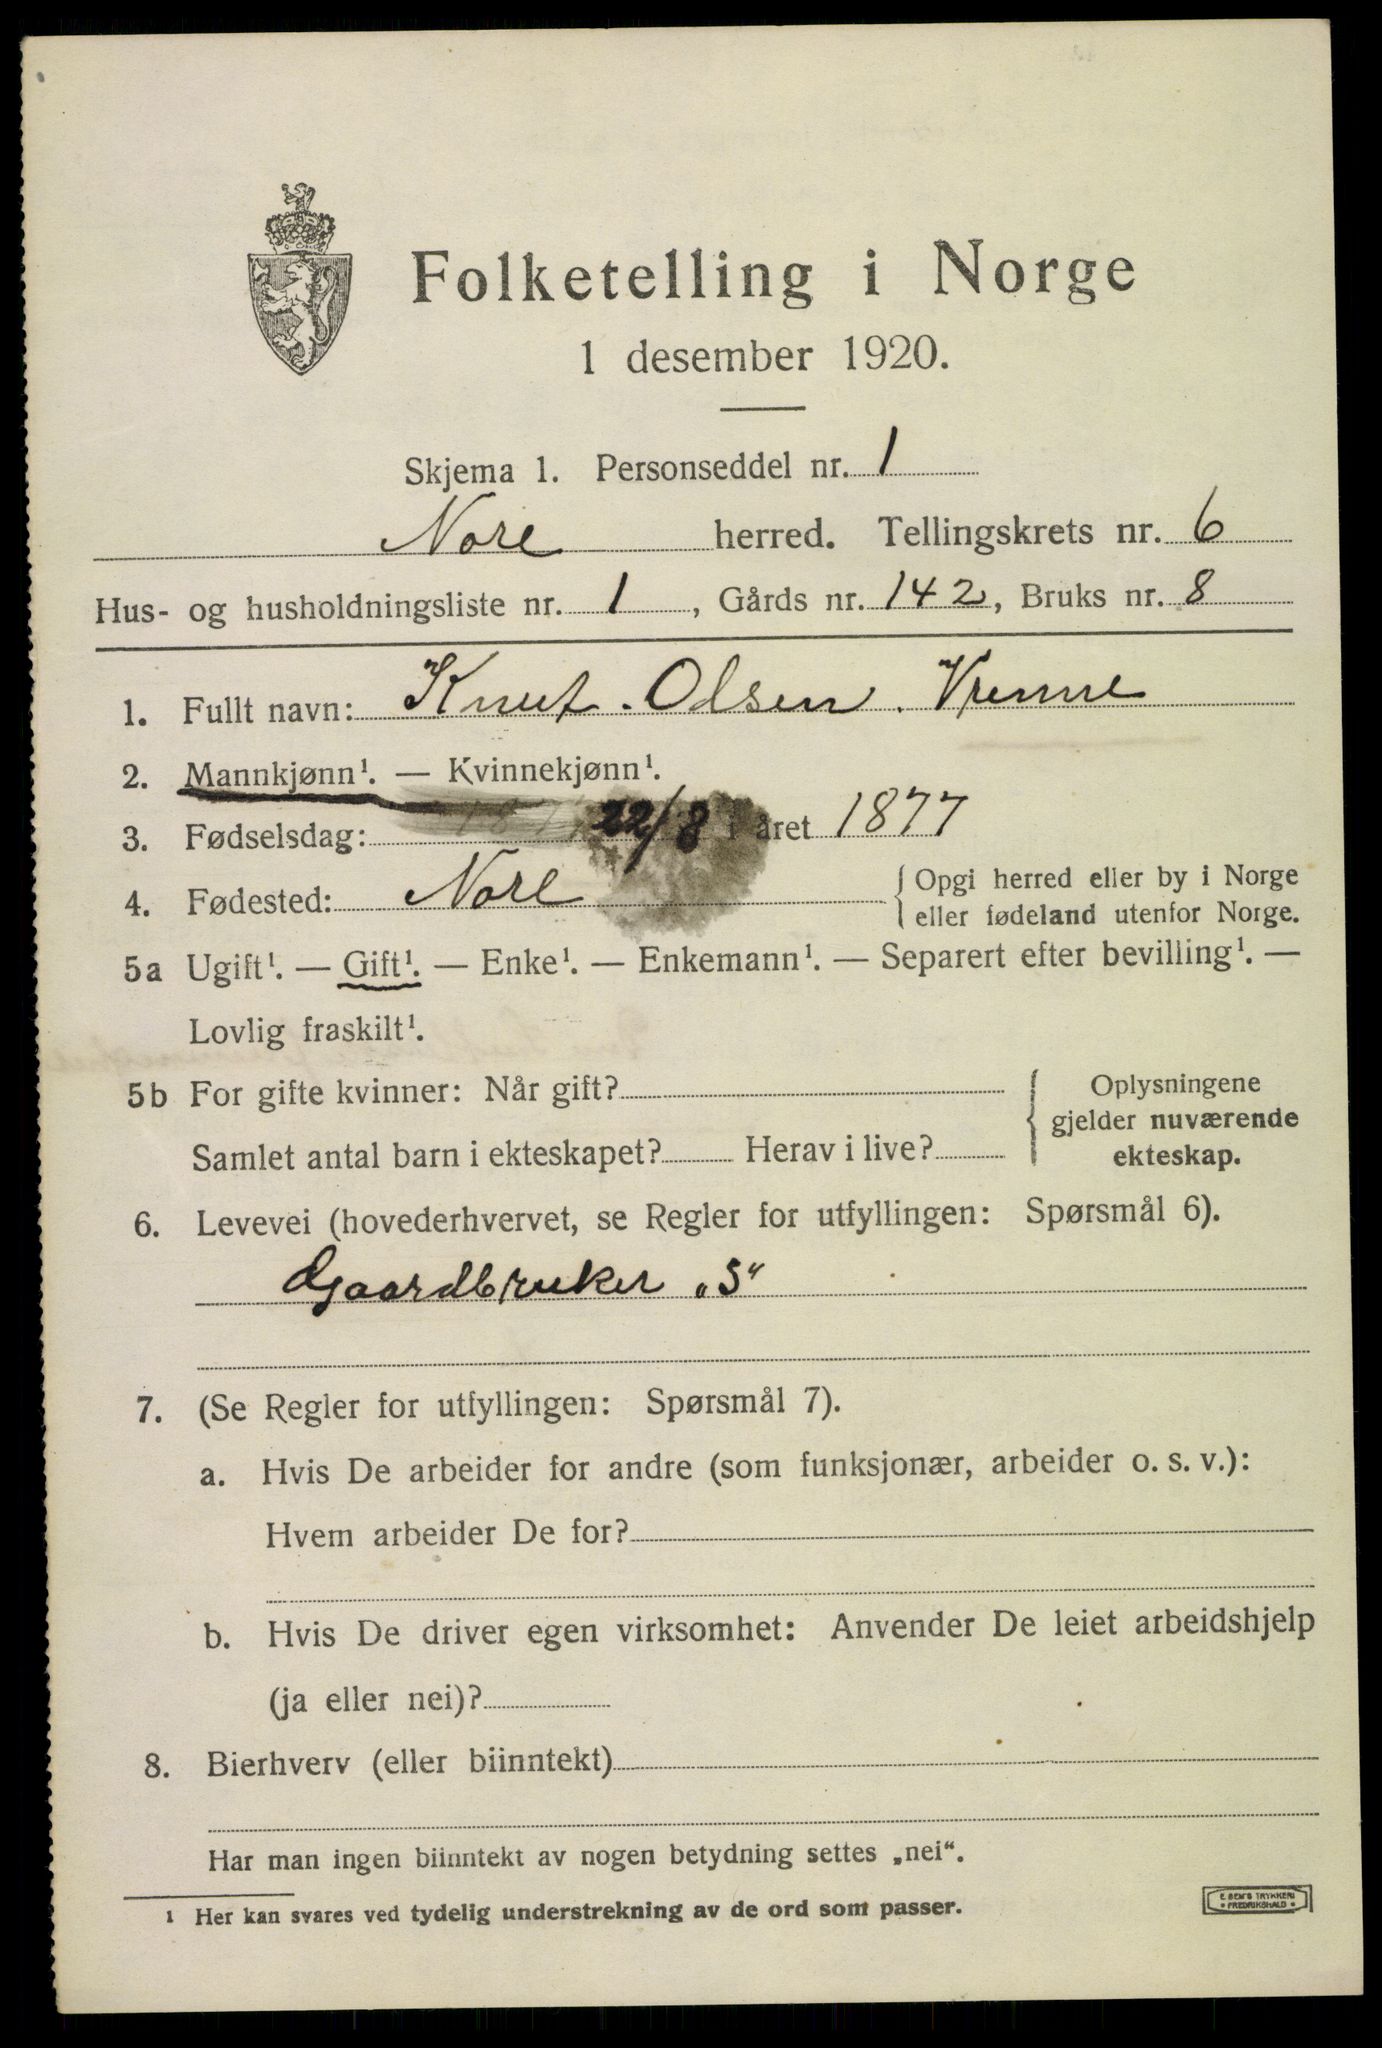 Folketelling i Norge
1 desember 1920.
Skjema 1. Personseddel nr. 1
Nore herred. Tellingskrets nr. 6
Hus- og husholdningsliste nr. 1, Gårds nr. 142, Bruks nr. 8
1. Fullt navn: Knut. Olsen. Vrenne
2. Mannkjønn¹. — Kvinnekjønn¹.
3. Fødselsdag: 22/8 i året 1877
4. Fødested: Nore { Opgi herred eller by i Norge
eller fødeland utenfor Norge.
5a Ugift¹. — Gift¹. — Enke¹. — Enkemann¹. — Separert efter bevilling¹. —
Lovlig fraskilt¹.
5b For gifte kvinner: Når gift? { Oplysningene
gjelder nuværende
ekteskap.
Samlet antal barn i ekteskapet? Herav i live?
6. Levevei (hovederhvervet, se Regler for utfyllingen: Spørsmål 6).
Gaardbruker „S"
7. (Se Regler for utfyllingen: Spørsmål 7).
a. Hvis De arbeider for andre (som funksjonær, arbeider o. s. v.):
Hvem arbeider De for?
b. Hvis De driver egen virksomhet: Anvender De leiet arbeidshjelp
(ja eller nei)?
8. Bierhverv (eller biinntekt)
Har man ingen biinntekt av nogen betydning settes „nei“.
1 Her kan svares ved tydelig understrekning av de ord som passer.
E. SEM'S TRYKKERI
• FREDRIKSHALD •